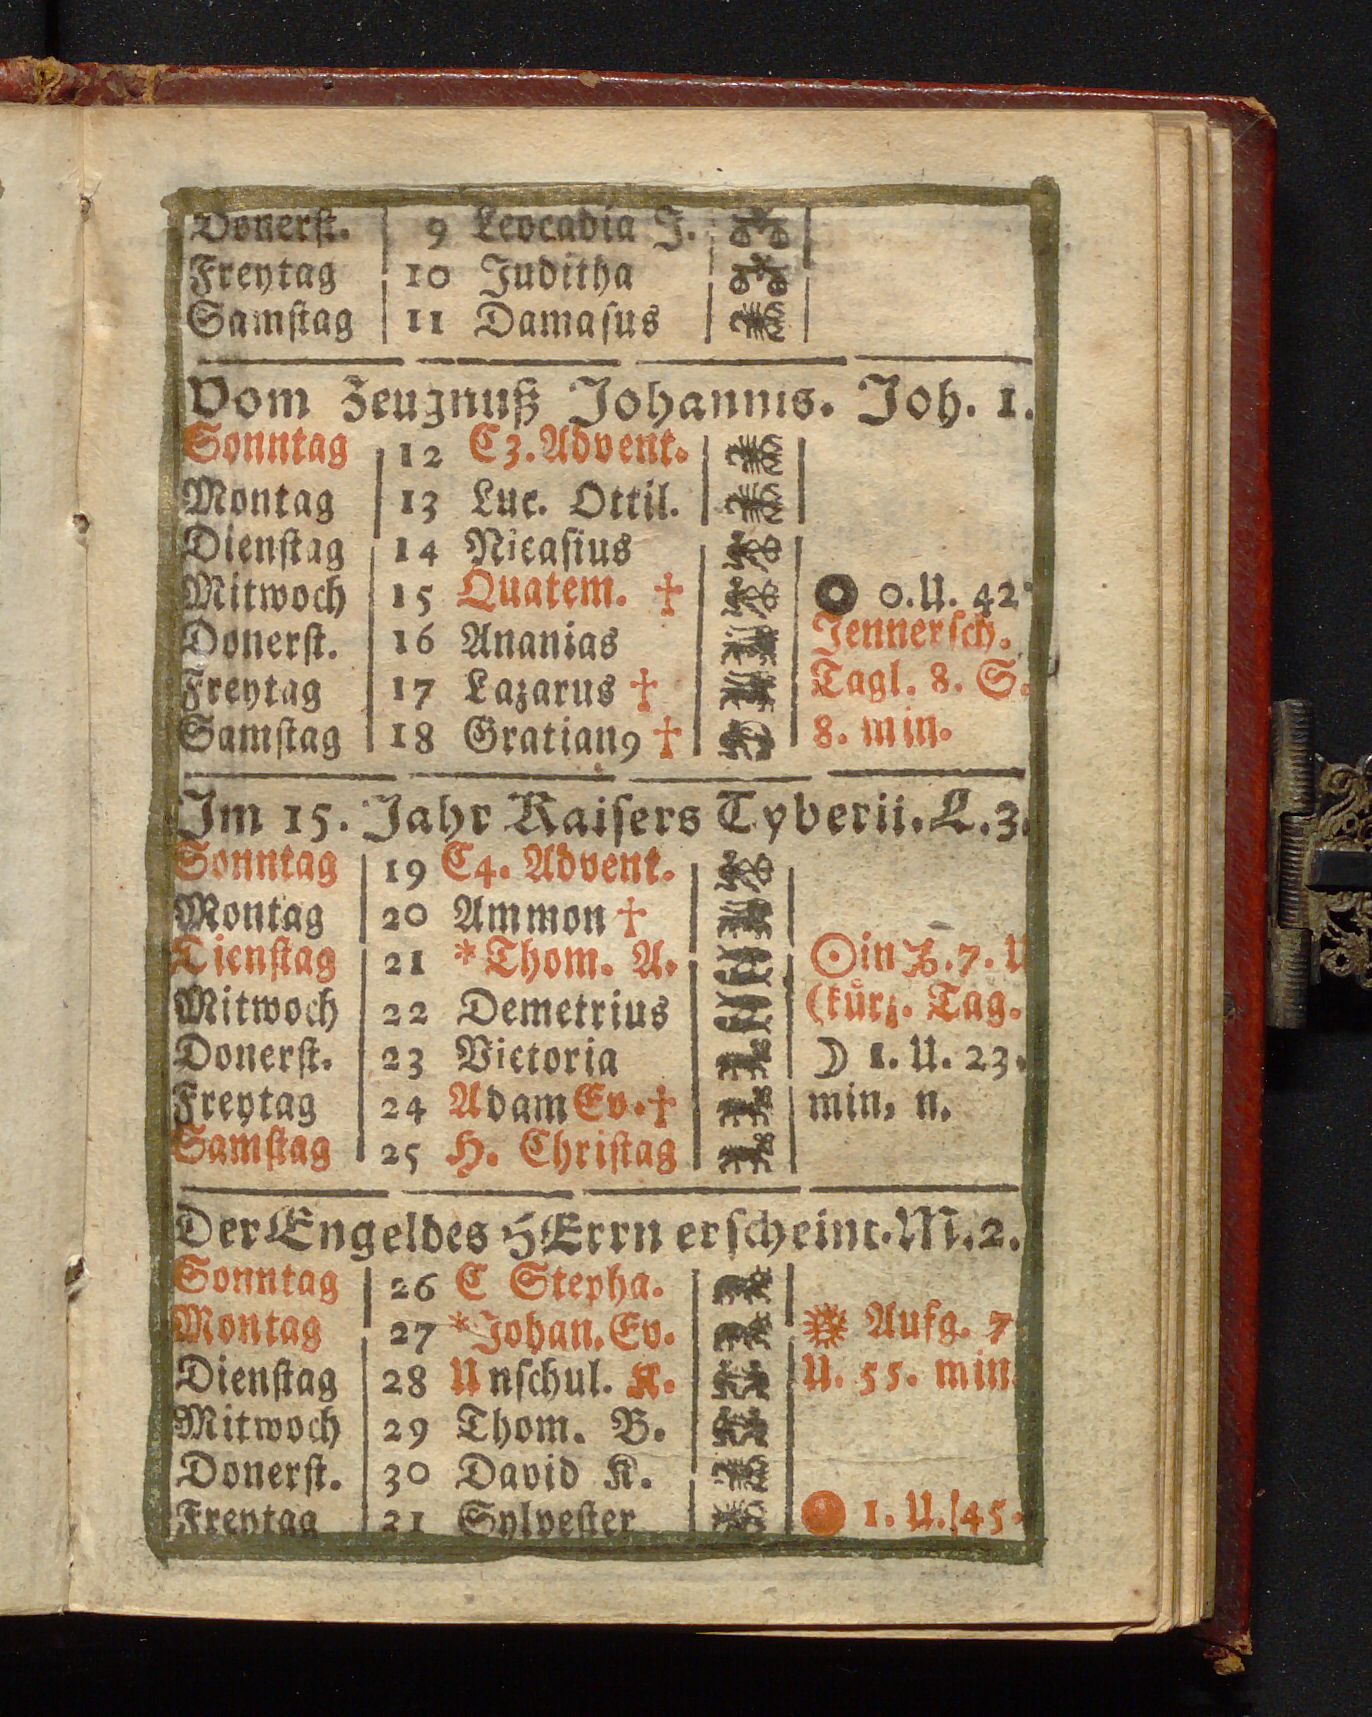 Donerst. 9 Leocadia J.
Freytag 10 Juditha
Samstag 11 Damasus
Vom Zeugnuß Johannis. Joh. 1.
Sonntag 12 C3. Advent.
Montag 13 Luc. Ottil.
Dienstag 14 Nicasius
Mitwoch 15 Quatem. ☩ ● 0. U. 42
Donerst. 16 Ananias Jennersch.
Freytag 17 Lazarus ☩ Tagl. 8. S.
Samstag 18 Gratian9 ☩ 8. min.
Im 15. Jahr Kaisers Tyberii. L. 3.
Sonntag 19 C4. Advent.
Montag 20 Ammon ☩
Dienstag 21 *Thom. A. ☉ in ♑. 7. U
Mitwoch 22 Demetrius (kürz. Tag.
Donerst. 23 Victoria ☽ 1. U. 23.
Freytag 24 Adam Ev. ☩ min. n.
Samstag 25 H. Christag
Der Engel des HErrn erscheint. M. 2.
Sonntag 26 C Stepha.
Montag 27 *Johan. Ev. Aufg. 7
Dienstag 28 Unschul. K. U. 55. min.
Mitwoch 29 Thom. B.
Donerst. 30 David K.
Freytag 31 Sylvester ● 1. U. 45.